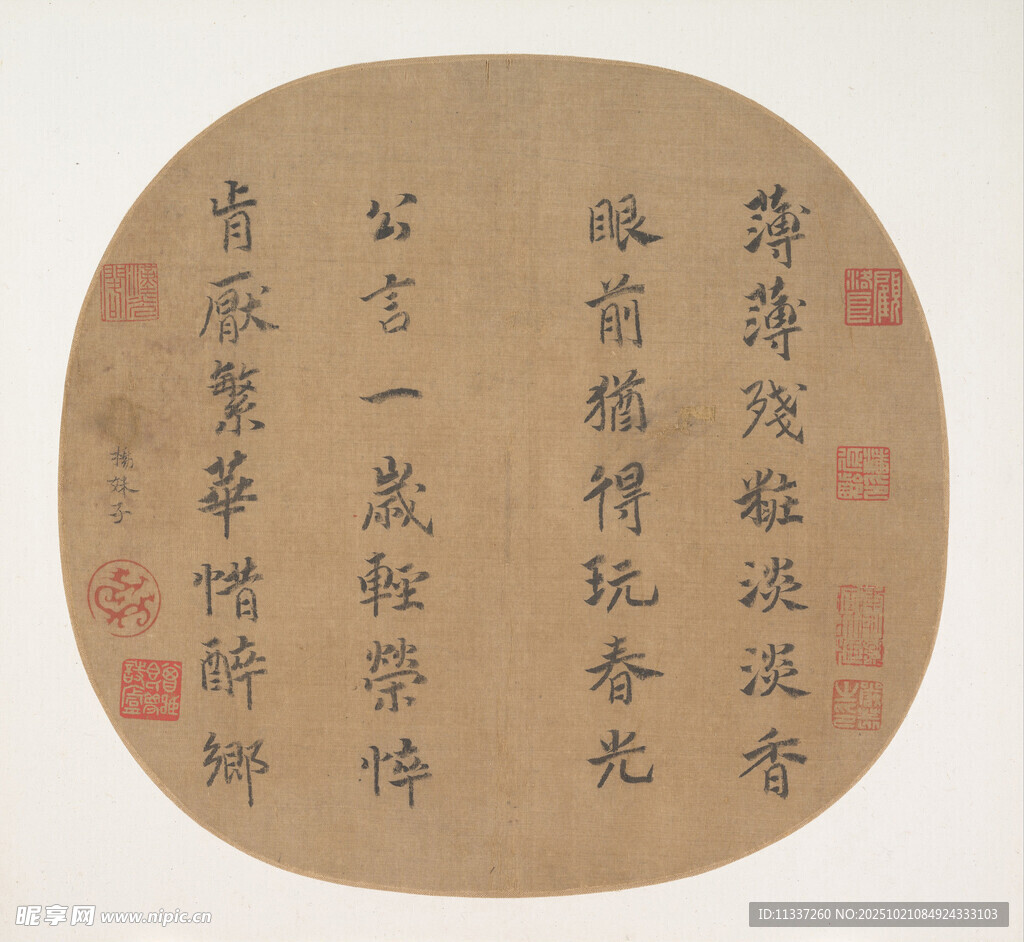 薄薄殘粧淡淡香
眼前猶得玩春光
公言一歲輕榮悴
肯厭繁華惜醉鄉
楊妹子
昵享网 www.nipic.cn
ID:11337260 NO:20251021084924333103